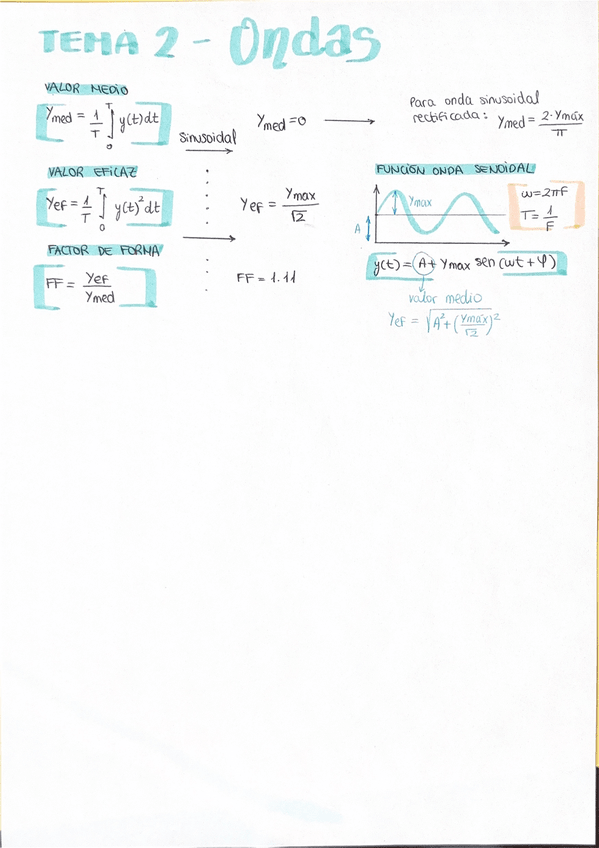 TEMA 2 - Ondas
VALOR MEDIO
Ymed = 1/T ∫₀ᵀ y(t)dt
Sinusoidal
Ymed = 0
Para onda sinusoidal
rectificada: Ymed = 2·Ymáx/π
VALOR EFICAZ
Yef = 1/T ∫₀ᵀ y(t)² dt
Yef = Ymax/√2
FACTOR DE FORMA
FF = Yef/Ymed
FF = 1.11
FUNCIÓN ONDA SENOIDAL
Ymax
A
ω=2πF
T = 1/F
y(t) = A + Ymax sen (ωt + φ)
valor medio
Yef = √(A² + (Ymáx/√2)²)